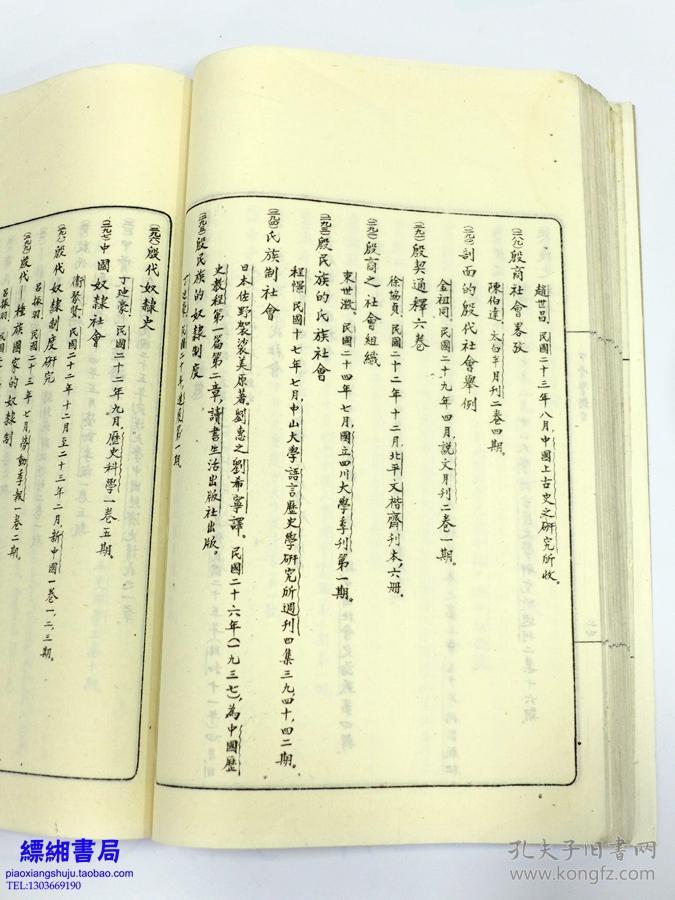 趙世昌。民國二十三年八月，中國上古史之研究所收。
(二八九)殷商社會畧攷
陳伯達。太白半月刊二卷四期。
(二九〇)剖面的殷代社會舉例
金祖同。民國二十九年四月，說文月刊二卷一期。
(二九一)殷契通釋六卷
徐協貞。民國二十二年十二月，北平文楷齋刊本，六冊。
(二九二)殷商之社會組織
束世澂。民國二十四年七月，國立四川大學季刊第一期。
(二九三)殷民族的氏族社會
程憬。民國十七年七月，中山大學語言歷史學研究所週刊四集三九，四十，四二期。
(二九四)氏族制社會
日本佐野袈裟美原著。劉惠之劉希寧譯。民國二十六年(一九三七)，為中國歷
史教程第一篇第二章，讀書生活出版社出版。
(二九五)殷民族的奴隸制度
丁迪豪。民國二十年，進展第一期。
(二九六)殷代奴隸史
丁迪豪。民國二十二年九月，歷史科學一卷五期。
(二九七)中國奴隸社會
衛聚賢。民國二十二年十二月至二十三年二月，新中國一卷一，二，三期。
(二九八)殷代奴隸制度研究
呂振羽。民國二十三年七月，勞動季報一卷二期。
(二九九)殷代——種族國家的奴隸制
呂振羽。民國
縹緗書局
piaoxiangshuju.taobao.com
TEL:1303669190
孔夫子旧書网
www.kongfz.com